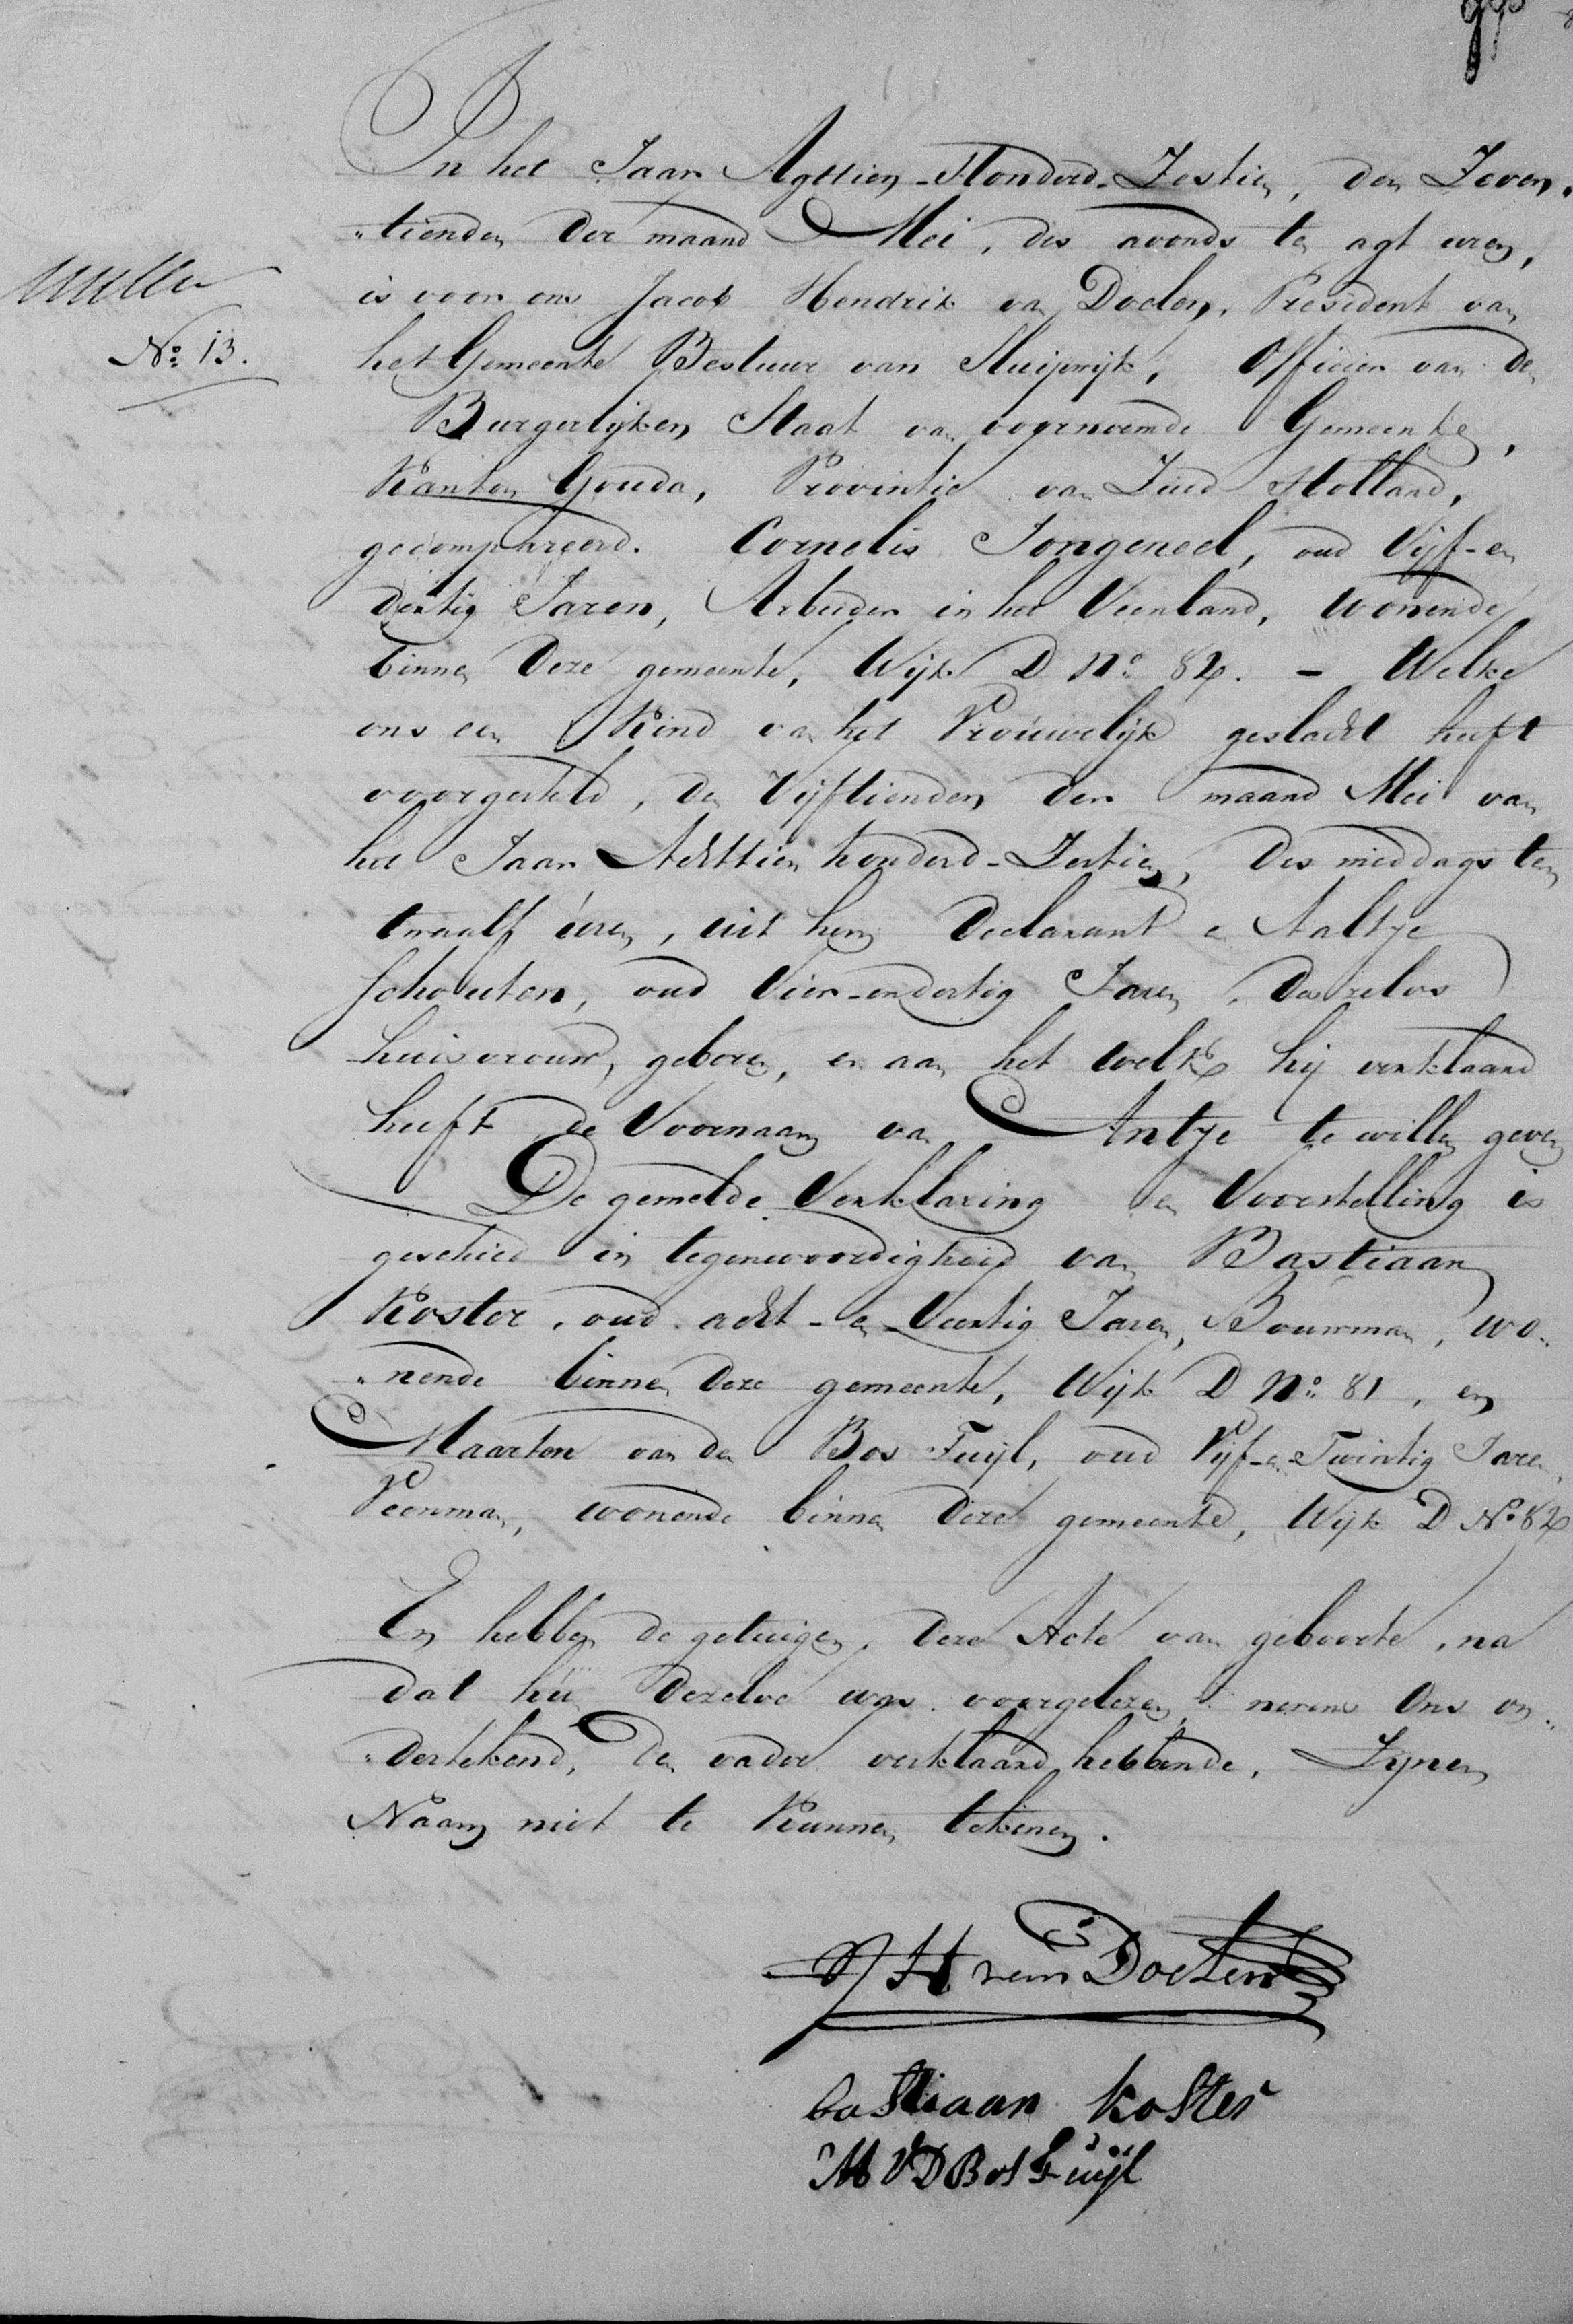 In het Jaar Agttien-Honderd-Zestien, den Zeven„
„tienden der maand Mei, des avonds te agt uren,
is voor ons Jacob Hendrik van Doelen, President van
No: 13.
het Gemeente Bestuur van Sluipwijk, Officier van den
Burgerlijken Staat van voornoemde Gemeente,
Kanton Gouda, Provintie van Zuid Holland,
gecompareerd. Cornelis Jongeneel, oud Vijf-en
dertig Jaren, Arbeider in het Veenland, wonende
binnen deze gemeente, Wijk D No: 82. - Welke
ons een Kind van het Vrouwelijk geslacht heeft
voorgesteld, den Vijftienden der maand Mei van
het Jaar Achttien honderd-Zestien, des middags ten
twaalf uren, uit hem Declarant en Aaltje
Schouten, oud Vier-endertig Jaren, deszelvs
huisvrouw, geboren, en aan het welke hij verklaard
heeft de Voornaam van Antje te willen geven
De gemelde Verklaring en Voorstelling is
geschied in tegenwoordigheid van Bastiaan
Koster, oud acht-en-Veertig Jaren, Bouwman, wo„
„nende binnen deze gemeente, Wijk D No: 81, en
Maarten van den Bos Tuijl, oud Vijf-en-Twintig Jaren,
Veenman, wonende binnen deze gemeente, Wijk D No 82
En hebben de getuigen, deze Acte van geboorte, na
dat hun dezelve was voorgelezen, nevens Ons on„
„dertekend, de vader verklaard hebbende, Zijnen
Naam niet te Kunnen tekenen.
JH van Doelen
bastiaan koster
M VD Bos Tuijl